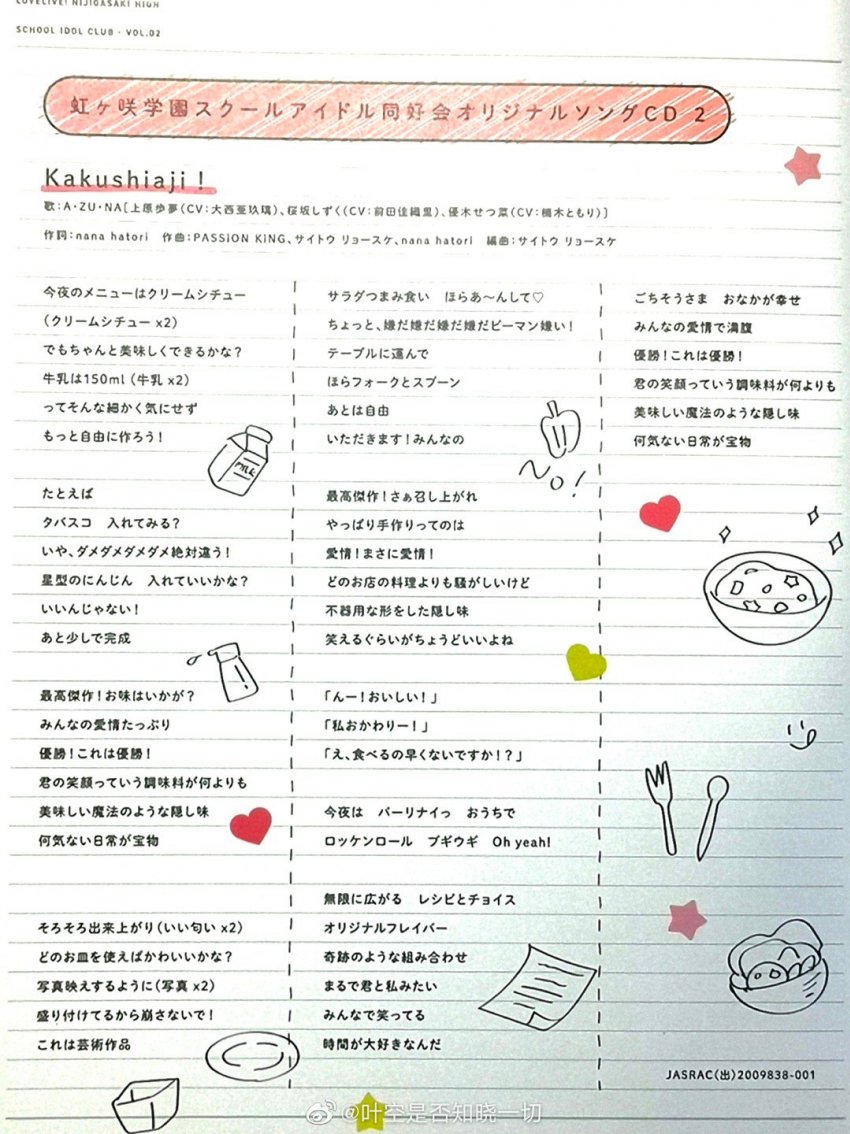 LOVELIVE! NIJIGASAKI HIGH
SCHOOL IDOL CLUB・VOL.02
虹ヶ咲学園スクールアイドル同好会オリジナルソングCD 2
Kakushiaji!
歌:A・ZU・NA[上原歩夢(CV:大西亜玖璃)、桜坂しずく(CV:前田佳織里)、優木せつ菜(CV:楠木ともり)]
作詞:nana hatori 作曲:PASSION KING、サイトウ リョースケ、nana hatori 編曲:サイトウ リョースケ
今夜のメニューはクリームシチュー
(クリームシチュー x2)
でもちゃんと美味しくできるかな?
牛乳は150ml (牛乳 x2)
ってそんな細かく気にせず
もっと自由に作ろう!
MILK
たとえば
タバスコ 入れてみる?
いや、ダメダメダメダメ絶対違う!
星型のにんじん 入れていいかな?
いいんじゃない!
あと少しで完成
最高傑作!お味はいかが?
みんなの愛情たっぷり
優勝!これは優勝!
君の笑顔っていう調味料が何よりも
美味しい魔法のような隠し味
何気ない日常が宝物
そろそろ出来上がり(いい匂い x2)
どのお皿を使えばかわいいかな?
写真映えするように(写真 x2)
盛り付けてるから崩さないで!
これは芸術作品
サラダつまみ食い ほらあ〜んして♡
ちょっと、嫌だ嫌だ嫌だ嫌だピーマン嫌い!
テーブルに運んで
ほらフォークとスプーン
あとは自由
いただきます!みんなの
No!
最高傑作!さぁ召し上がれ
やっぱり手作りってのは
愛情!まさに愛情!
どのお店の料理よりも騒がしいけど
不器用な形をした隠し味
笑えるぐらいがちょうどいいよね
「んー!おいしい!」
「私おかわりー!」
「え、食べるの早くないですか!?」
今夜は パーリナイっ おうちで
ロッケンロール ブギウギ Oh yeah!
無限に広がる レシピとチョイス
オリジナルフレイバー
奇跡のような組み合わせ
まるで君と私みたい
みんなで笑ってる
時間が大好きなんだ
ごちそうさま おなかが幸せ
みんなの愛情で満腹
優勝!これは優勝!
君の笑顔っていう調味料が何よりも
美味しい魔法のような隠し味
何気ない日常が宝物
JASRAC(出)2009838-001
@叶空是否知晓一切